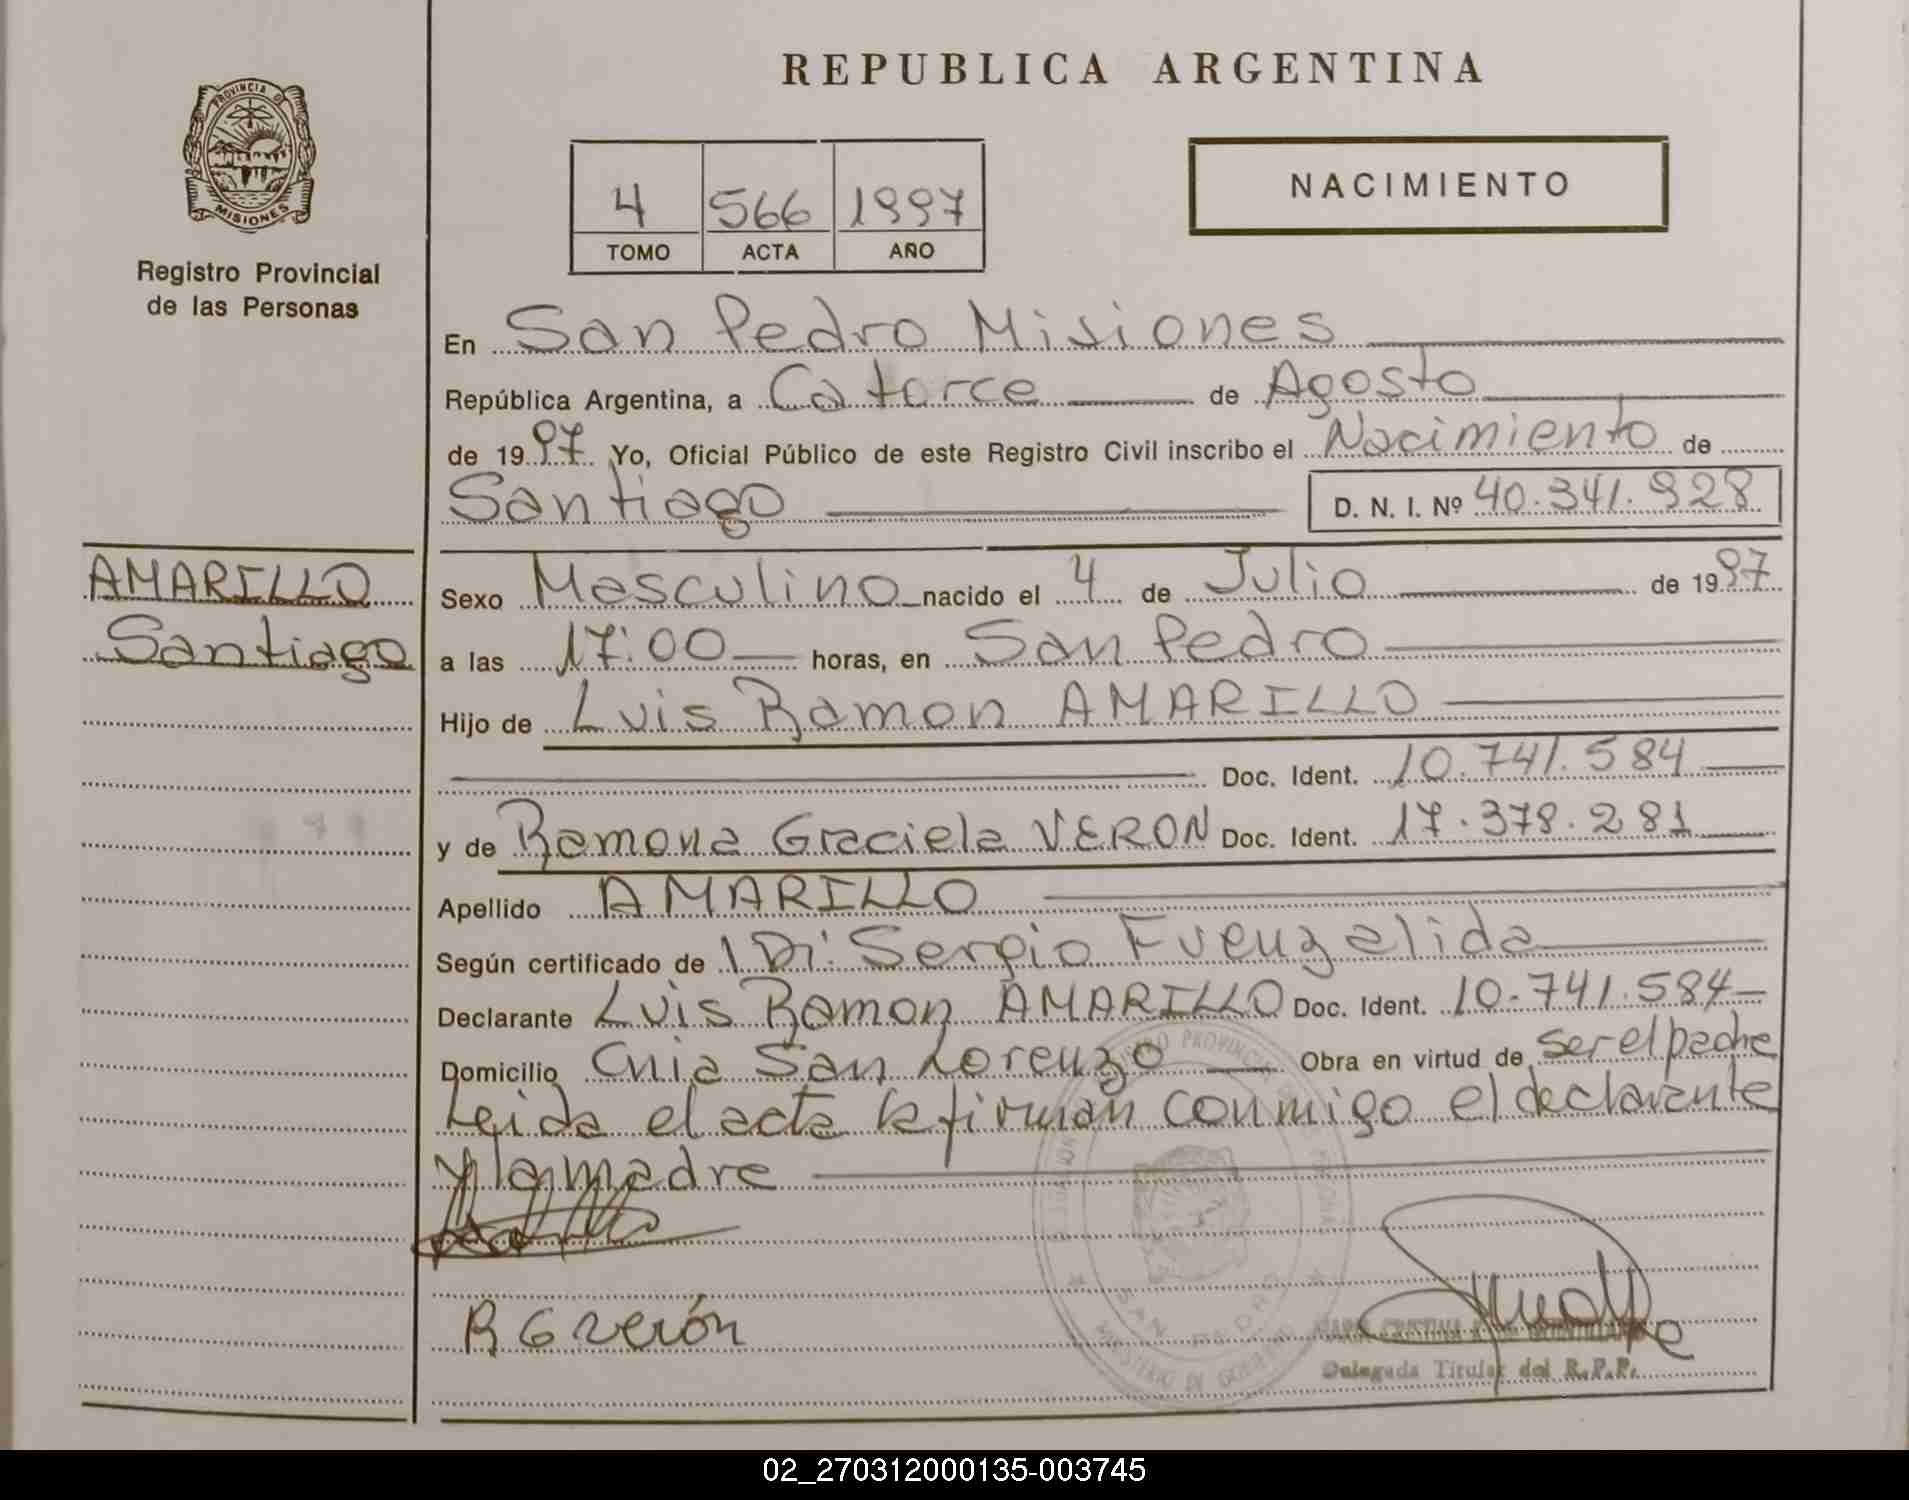 REPUBLICA ARGENTINA
PROVINCIA DE
MISIONES
Registro Provincial
de las Personas
4 566 1997
TOMO ACTA AÑO
NACIMIENTO
En San Pedro Misiones
República Argentina, a Catorce de Agosto
de 1997 Yo, Oficial Público de este Registro Civil inscribo el Nacimiento de
Santiago D. N. I. Nº 40.341.928
AMARILLO
Santiago
Sexo Masculino nacido el 4 de Julio de 1997
a las 17:00 horas, en San Pedro
Hijo de Luis Ramon AMARILLO
Doc. Ident. 10.741.584
y de Ramona Graciela VERON Doc. Ident. 17.378.281
Apellido AMARILLO
Según certificado de Sergio Fuenzalida
Declarante Luis Ramon AMARILLO Doc. Ident. 10.741.584
Domicilio Cnia San Lorenzo Obra en virtud de ser el padre
Leida el acta la firman conmigo el declarante
y la madre
R G Verón
SAN PEDRO
MINISTERIO DE GOBIERNO
MARIA CRISTINA
Delegada Titular del R.P.P.
02_270312000135-003745